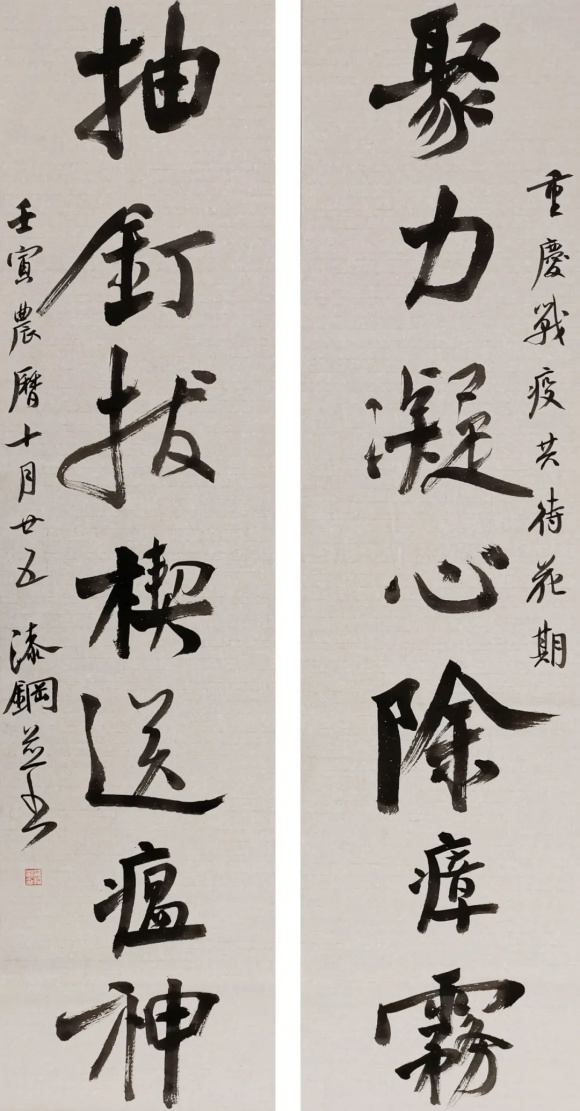 重慶戰疫共待花期
聚力凝心除瘴霧
抽釘拔楔送瘟神
壬寅農曆十月廿五 漆鋼并書